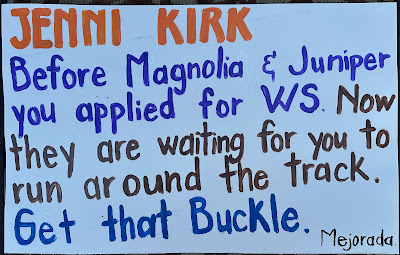 JENNI KIRK
Before Magnolia & Juniper
you applied for WS. Now
they are waiting for you to
run around the track.
Get that Buckle.
Mejorada.